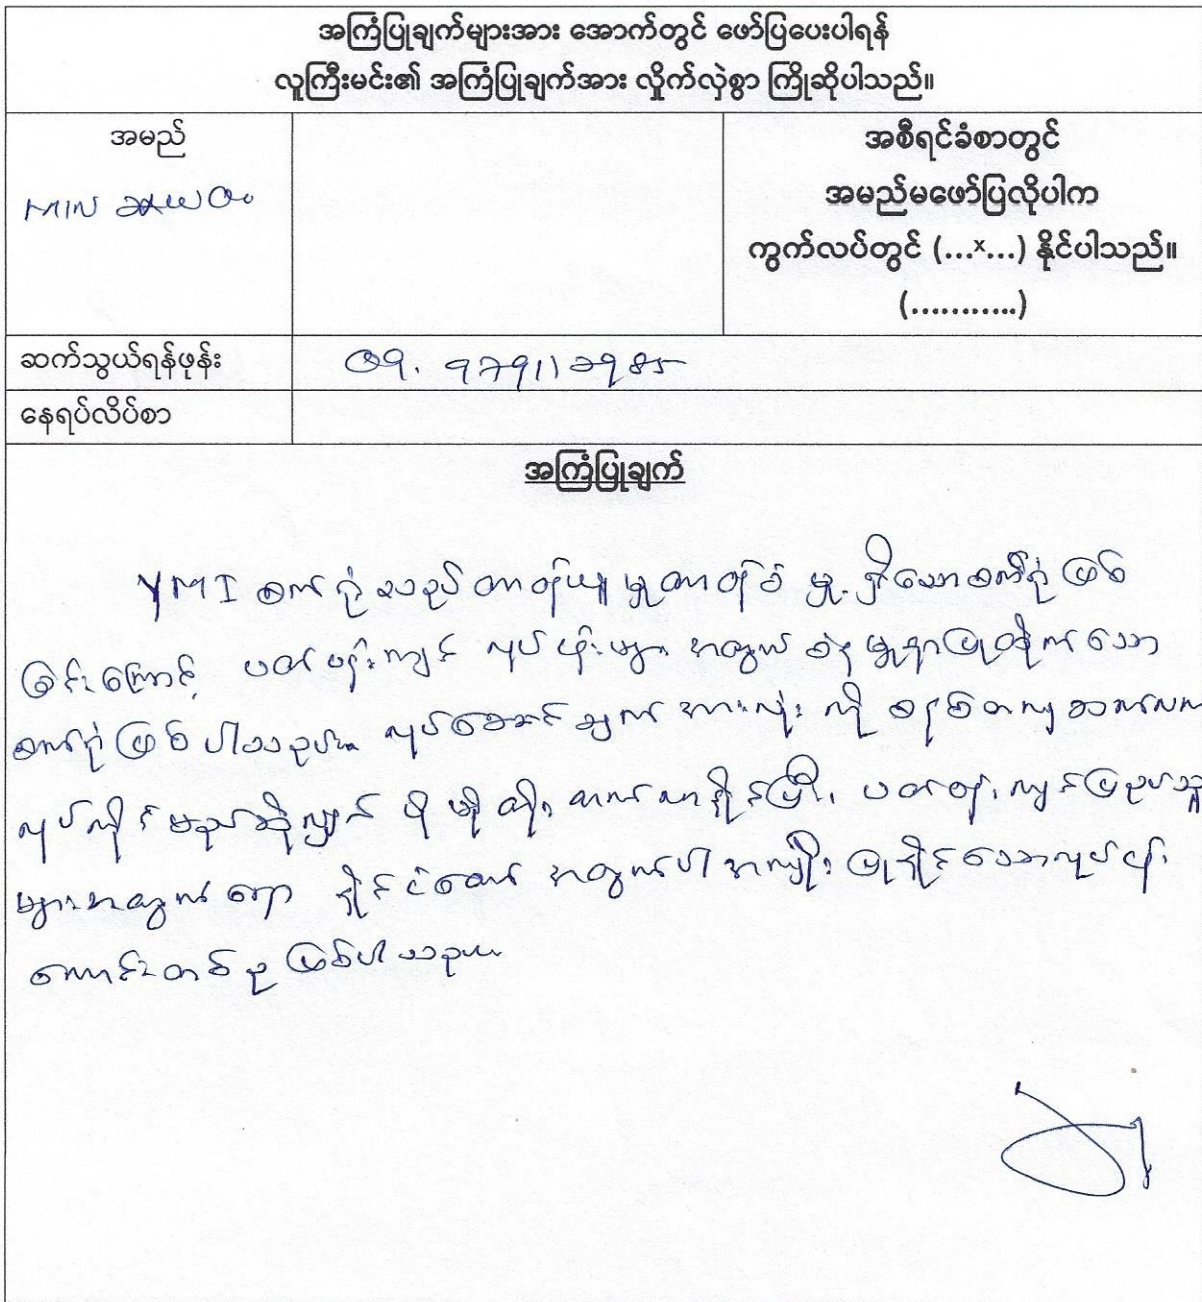 အကြံပြုချက်များအား အောက်တွင် ဖော်ပြပေးပါရန်
လူကြီးမင်း၏ အကြံပြုချက်အား လှိုက်လှဲစွာ ကြိုဆိုပါသည်။
အမည်
MIN
အစီရင်ခံစာတွင်
အမည်မဖော်ပြလိုပါက
ကွက်လပ်တွင် (...x...) နိုင်ပါသည်။
(...........)
ဆက်သွယ်ရန်ဖုန်း
၀၅.
နေရပ်လိပ်စာ
အကြံပြုချက်
YMI စက်ရုံ သည် တာဝန်ယူမှု တာဝန်ခံ မှု ရှိသော စက်ရုံ ဖြစ်
ခြင်းကြောင့် ပတ်ဝန်းကျင် လုပ်ငန်းများ အတွက်
စက်ရုံ ဖြစ် ပါသည်။ လုပ်ဆောင် ချက် အားလုံး ကို စနစ်တကျ ဆက်လက်
လုပ်ကိုင် မည်ဆိုလျှင် ပို မို တိုး တက် လာနိုင်ပြီး ပတ်ဝန်းကျင်
များအတွက် ရော နိုင်ငံတော် အတွက်ပါ အကျိုး ပြုနိုင်သော လုပ်ငန်း
ကောင်းတစ်ခု ဖြစ်ပါ သည်။